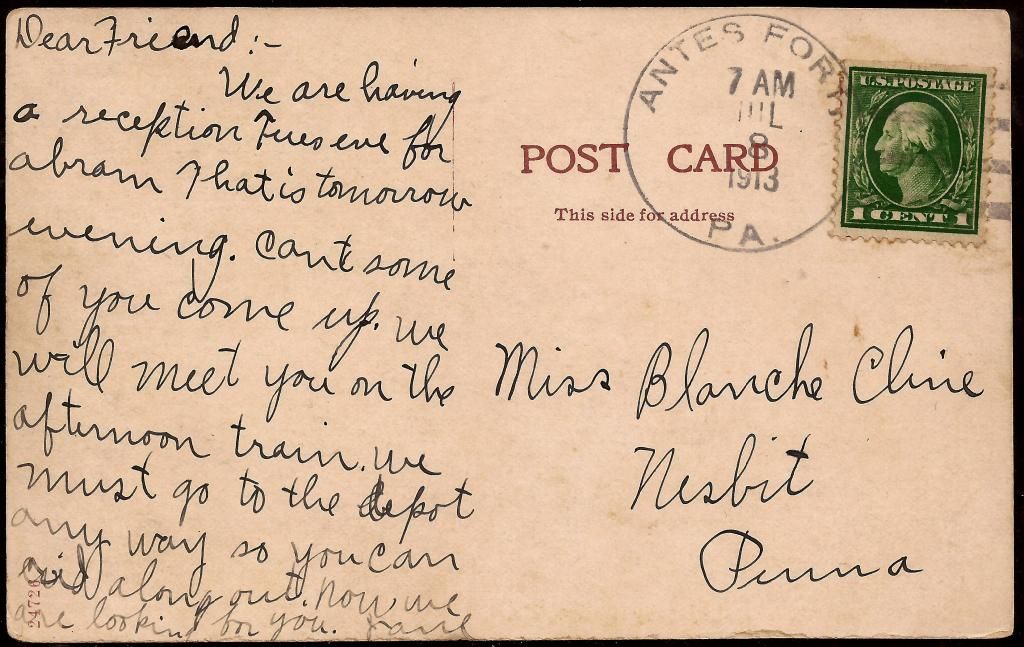 Dear Friend :-
We are having
a reception Tues eve for
abram That is tomorrow
evening. Cant some
of you come up. we
will meet you on the
afternoon train. we
must go to the depot
any way so you can
rid along out. Now we
are looking for you. Jane
24726
POST CARD
This side for address
ANTES FORT
7 AM
JUL
8
1913
PA.
U.S. POSTAGE
1 CENT 1
Miss Blanche Cline
Nesbit
Penna